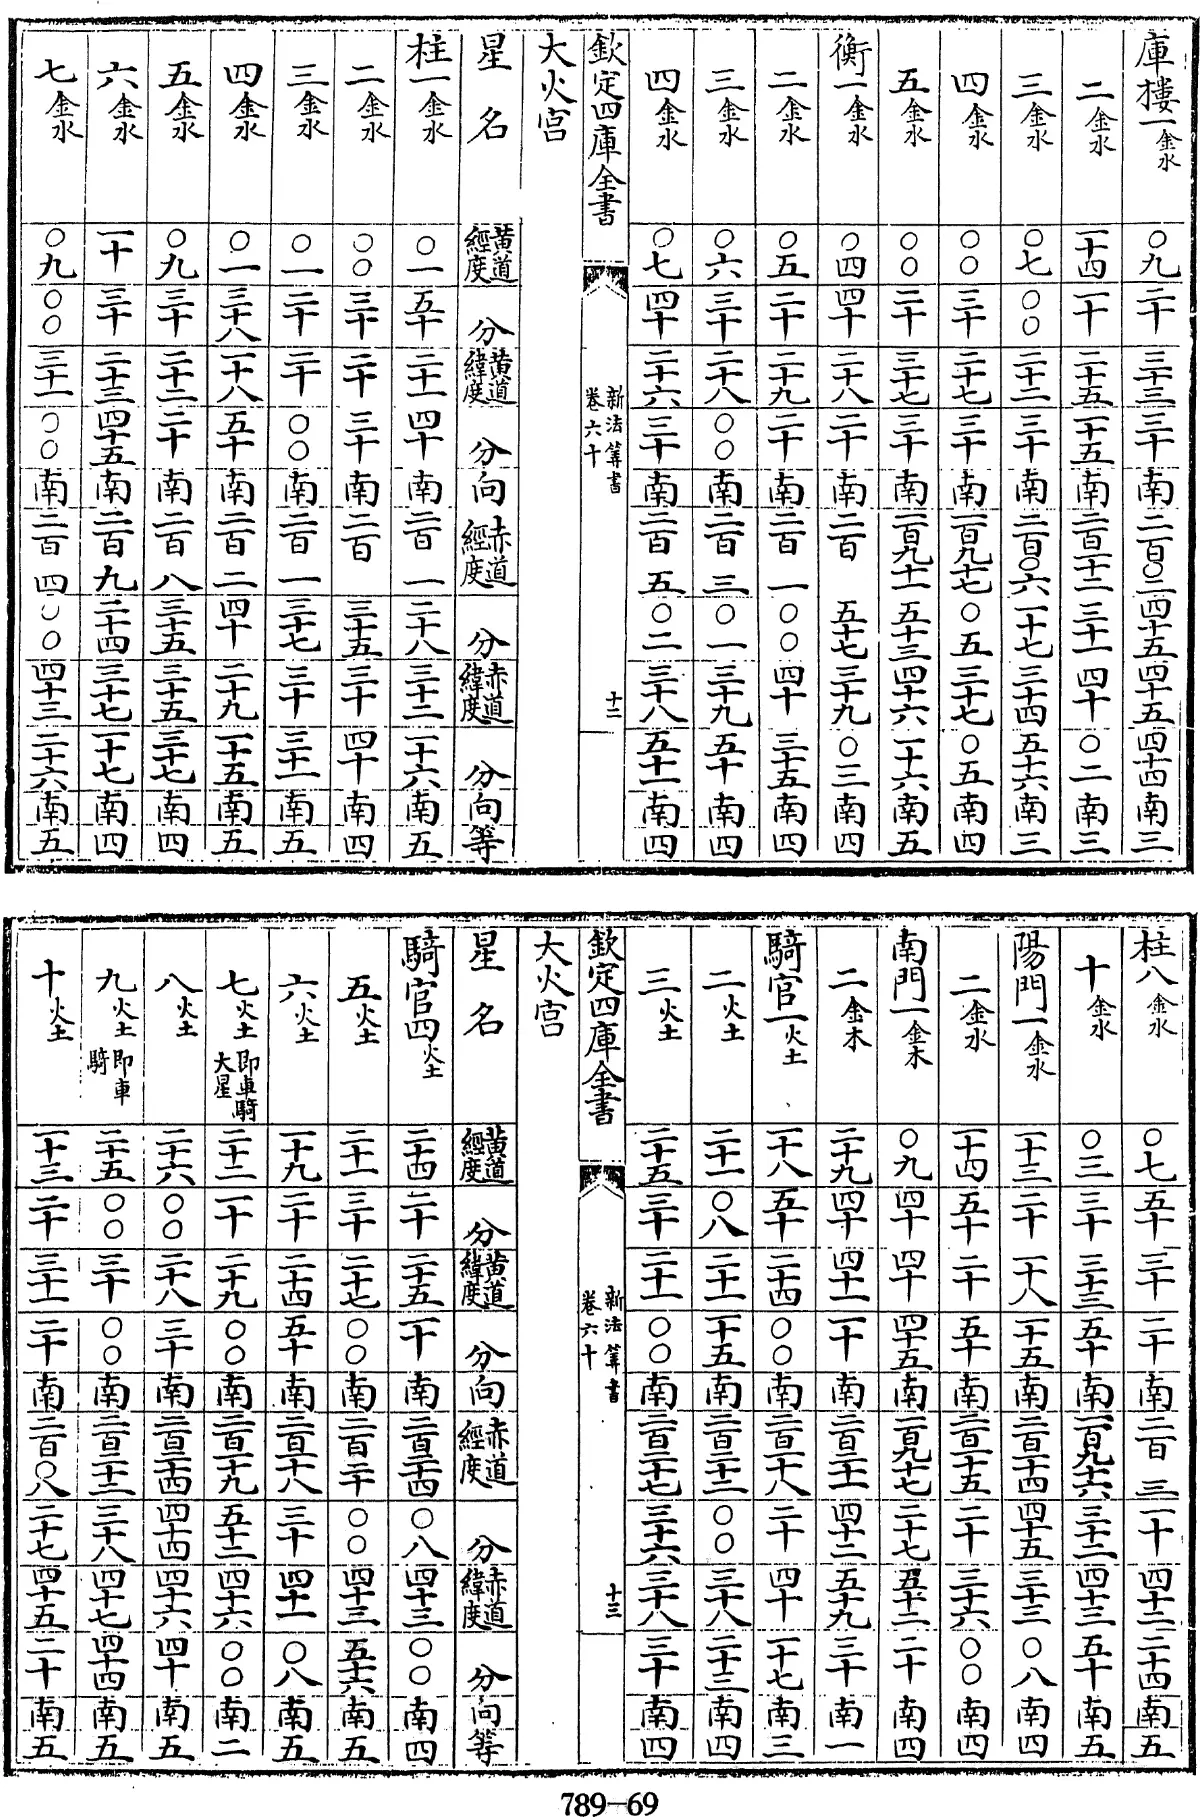 庫樓一金水 〇九 二十 三十三 三十 南 二百〇二 四十五 四十五 四十四 南 三
二金水 一十四 一十 二十五 一十五 南 二百一十二 三十一 四十 〇二 南 三
三金水 〇七 〇〇 二十二 三十 南 二百〇六 一十七 三十四 五十六 南 三
四金水 〇〇 三十 二十七 三十 南 一百九十七 〇五 三十七 〇五 南 四
五金水 〇〇 二十 三十七 三十 南 一百九十一 五十三 四十六 一十六 南 五
衡一金水 〇四 四十 二十八 二十 南 二百 五十七 三十九 〇三 南 四
二金水 〇五 二十 二十九 二十 南 二百一 〇〇 四十 三十五 南 四
三金水 〇六 三十 二十八 〇〇 南 二百三 〇一 三十九 五十 南 四
四金水 〇七 四十 二十六 三十 南 二百五 〇二 三十八 五十一 南 四
欽定四庫全書 新法筭書 卷六十 十二
大火宫
星名 黄道經度 分 黄道緯度 分 向 赤道經度 分 赤道緯度 分 向 等
柱一金水 〇一 五十 二十一 四十 南 二百一 二十八 三十二 一十六 南 五
二金水 〇〇 三十 二十 三十 南 二百 三十五 三十 四十 南 四
三金水 〇一 二十 二十 〇〇 南 二百一 三十七 三十 三十一 南 五
四金水 〇一 三十八 一十八 五十 南 二百二 四十 二十九 一十五 南 五
五金水 〇九 三十 二十二 二十 南 二百八 三十五 三十五 三十七 南 四
六金水 一十 三十 二十三 四十五 南 二百九 二十四 三十七 一十七 南 四
七金水 〇九 〇〇 三十一 〇〇 南 二百四 〇〇 四十三 二十六 南 五
柱八金水 〇七 五十 三十 二十 南 二百三 一十 四十二 二十四 南 五
十金水 〇三 三十 三十三 五十 南 一百九十六 三十二 四十三 五十 南 五
陽門一金水 一十三 二十 一十八 一十五 南 二百一十四 四十五 三十三 〇八 南 四
二金水 一十四 五十 二十 五十 南 二百一十五 二十 三十六 〇〇 南 四
南門一金木 〇九 四十 四十 四十五 南 一百九十七 二十七 五十二 二十 南 四
二金木 二十九 四十 四十一 一十 南 二百一十一 四十二 五十九 三十 南 一
騎官一火土 一十八 五十 二十四 〇〇 南 二百一十八 二十 四十 一十七 南 三
二火土 二十一 〇八 二十一 一十五 南 二百二十二 〇〇 三十八 二十三 南 四
三火土 二十五 三十 二十一 〇〇 南 二百二十七 三十六 三十八 三十 南 四
欽定四庫全書 新法筭書 卷六十 十三
大火宫
星名 黄道經度 分 黄道緯度 分 向 赤道經度 分 赤道緯度 分 向 等
騎官四火土 二十四 二十 二十五 一十 南 二百二十四 〇八 四十三 〇〇 南 四
五火土 二十一 三十 二十七 〇〇 南 二百二十 〇〇 四十三 五十六 南 五
六火土 一十九 二十 二十四 五十 南 二百一十八 三十 四十一 〇八 南 五
七火土即車騎大星 二十二 一十 二十九 〇〇 南 二百一十九 五十二 四十六 〇〇 南 二
八火土 二十六 〇〇 二十八 三十 南 二百二十四 四十四 四十六 四十 南 五
九火土即車騎 二十五 〇〇 三十 〇〇 南 二百二十二 三十八 四十七 四十四 南 五
十火土 一十三 二十 三十一 二十 南 二百〇八 二十七 四十五 二十 南 五
789-69